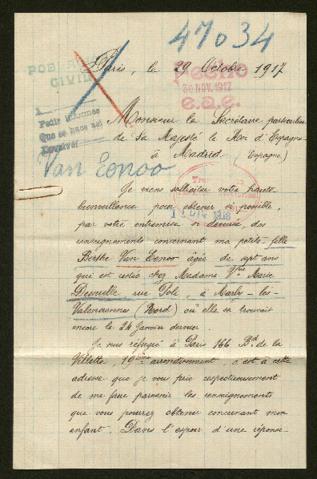 47034
Paris, le 29 Octobre 1917
POBLACIÓN
CIVIL
pecho
30 NOV. 1917
e.a.e.
Monsieur le Secrétaire particulier
de Sa Majesté le Roi d'Espagne
à Madrid (Espagne)
Van Lonoo
Je viens solliciter votre haute
bienveillance pour obtenir si possible,
par votre entremise
renseignements concernant ma petite fille
Berthe Van Lonoo âgée de sept ans
qui est restée chez Madame Vve Marie
rue Pole, à Marly-les-
Valenciennes (Nord) où elle se trouvait
encore le 28 Janvier dernier.
Je suis réfugié à Paris 166 Bd de la
Villette, 19ème arrondissement, c'est à cette
adresse que je vous prie respectueusement
de me faire parvenir les renseignements
que vous pourrez obtenir concernant mon
enfant. Dans l'espoir d'une réponse